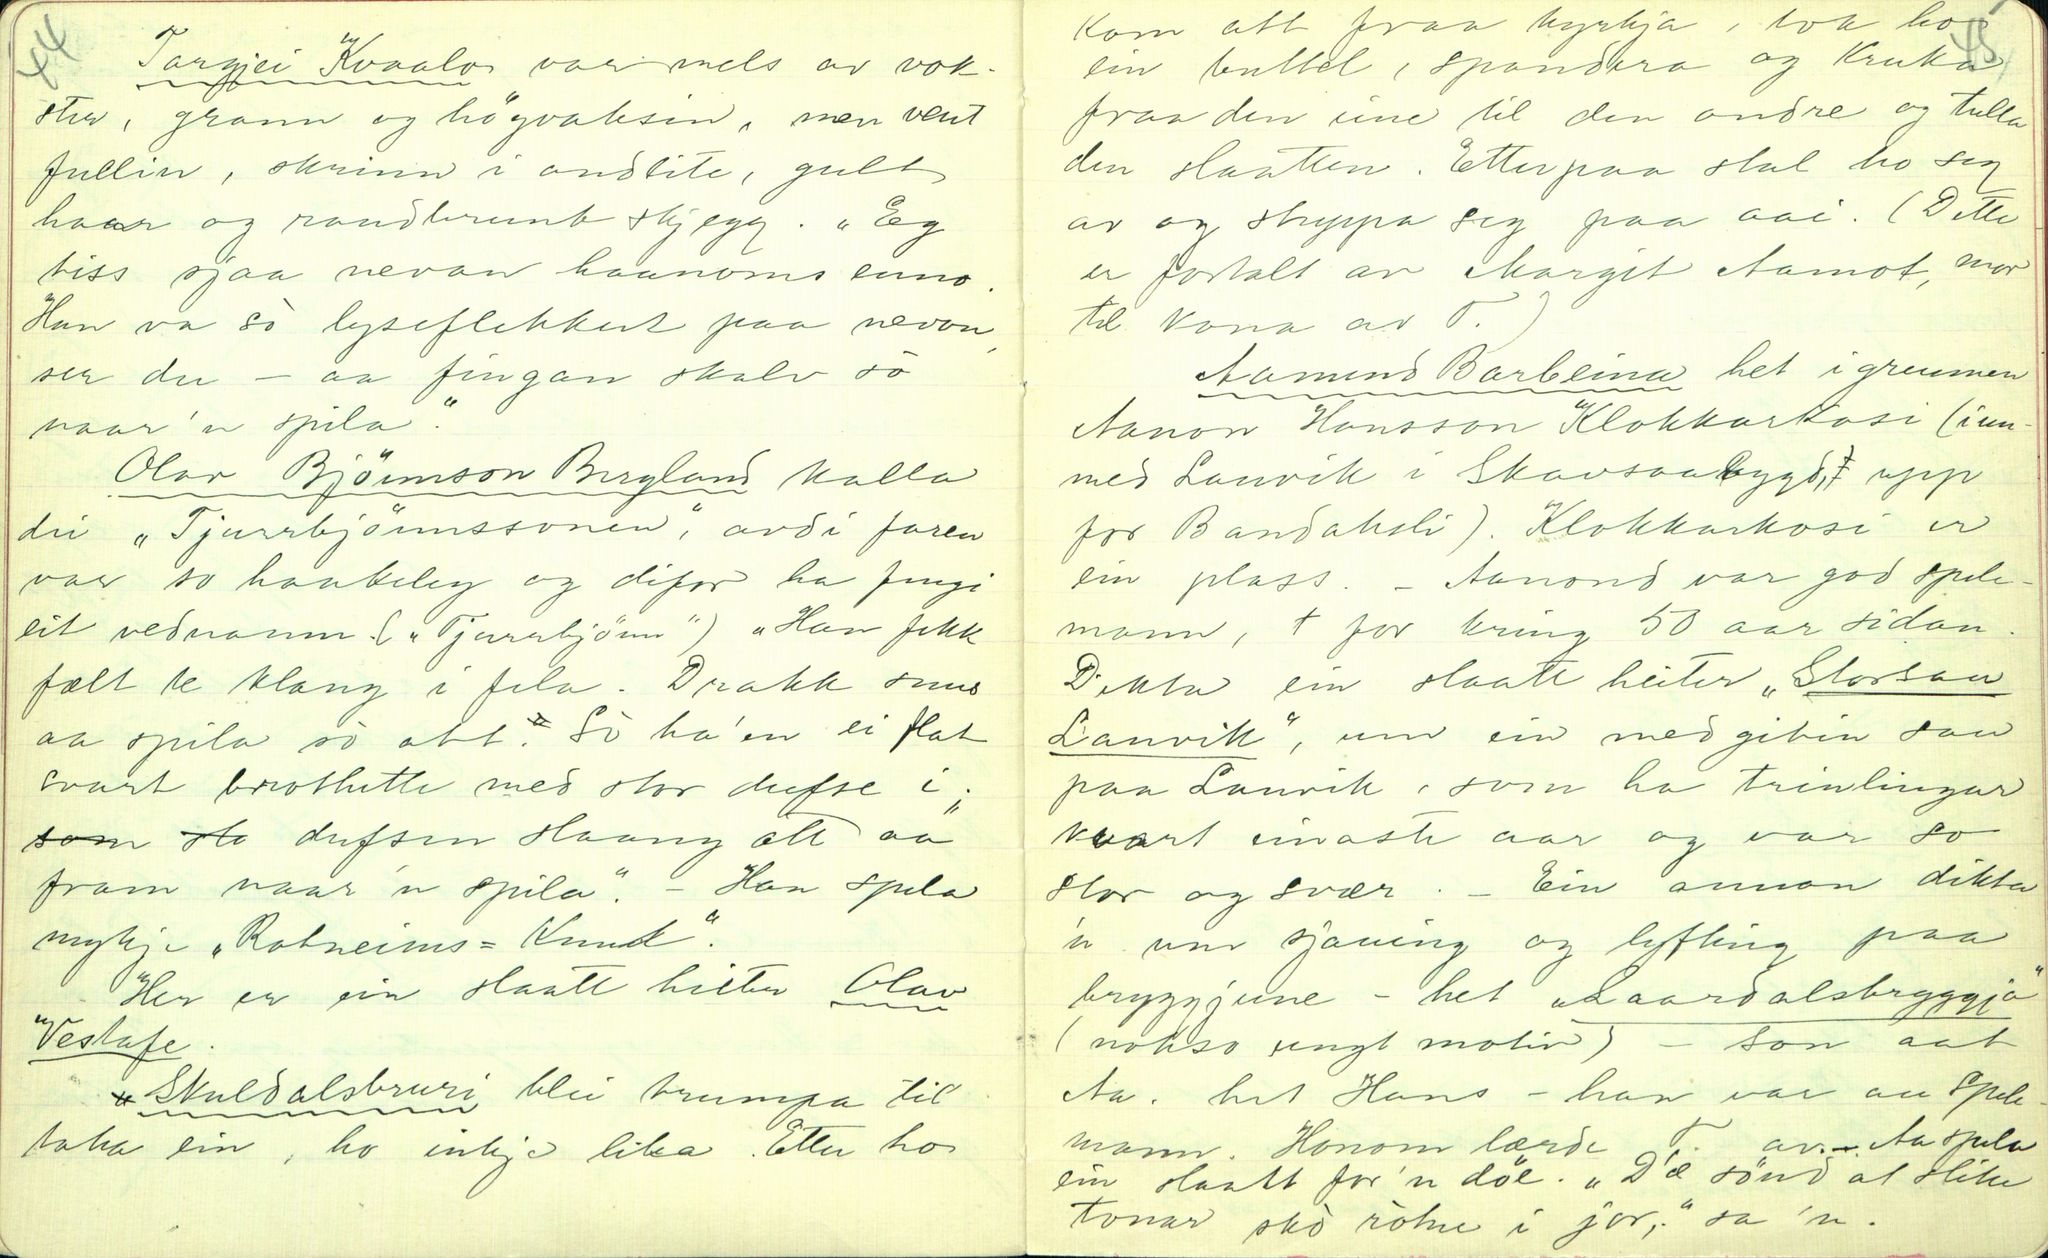 44
Targjei Kvaalo var mels av vok-
ster, grann og högvaksin, men vent
fullin, skrinn i andlite, gult
haar og raudbrunt skjegg. "Eg
tiss sjaa nevan haanoms enno.
Han va sò lyseflekket paa nevan,
ser du – aa fingan skalv sò
naar 'n spila".
Olav Björnson Bergland kalla
dei "Tjurrbjönnssonen", avdi faren
var so haakeleg og difor ha fengi
eit vednamn ("Tjurrbjönn") "Han fekk
fælt te klang i fela. Drakk snus
aa spila sò att." Sò ha 'en ei flat
svart brothette med stor dufse i,
som sto dufsen slaang att "aa
fram naar 'n spila". – Han spela
mykje "Rotneims-Knut".
Her er ein slaatt heiter Olav
Vestafe.
Skuldalsbruri blei trumpa til
taka ein, ho inkje lika. Etter ho
45
kom att fraa kyrkja, tok ho
ein buttel, spandera og kruka
fraa den eine til den andre og tulla
den slaatten. Etterpaa stal ho seg
av og stuppa seg paa aai. (Dette
er fortalt av Margit Aamot, mor
til kona av T.)
Aamund Barbeina het i greunnen
Aanon Hansson Klokkarkasi (inn-
med Lauvik i Skavsaabygd, upp
for Bandaksli). Klokkarkosi er
ein plass. – Aanond var god spele-
mann, † for kring 50 aar sidan.
Dikta ein slaatt heiter "Storsau
Lauvik", um ein medgibin sau
paa Lauvik, som ha trinlingar
kvart einaste aar og var so
stor og svær. – Ein annan dikta
'n um sjauing og lyfting paa
bryggjune – het "Laardalsbryggja"
(nokso ungt motiv) – Son aat
Aa. het Hans – han var au spele-
mann. Honom lærde T. av. – Aa spela
ein slaatt for 'n döe. "D'æ sönd at slike
tonar skò ròtne i jor," sa 'n.